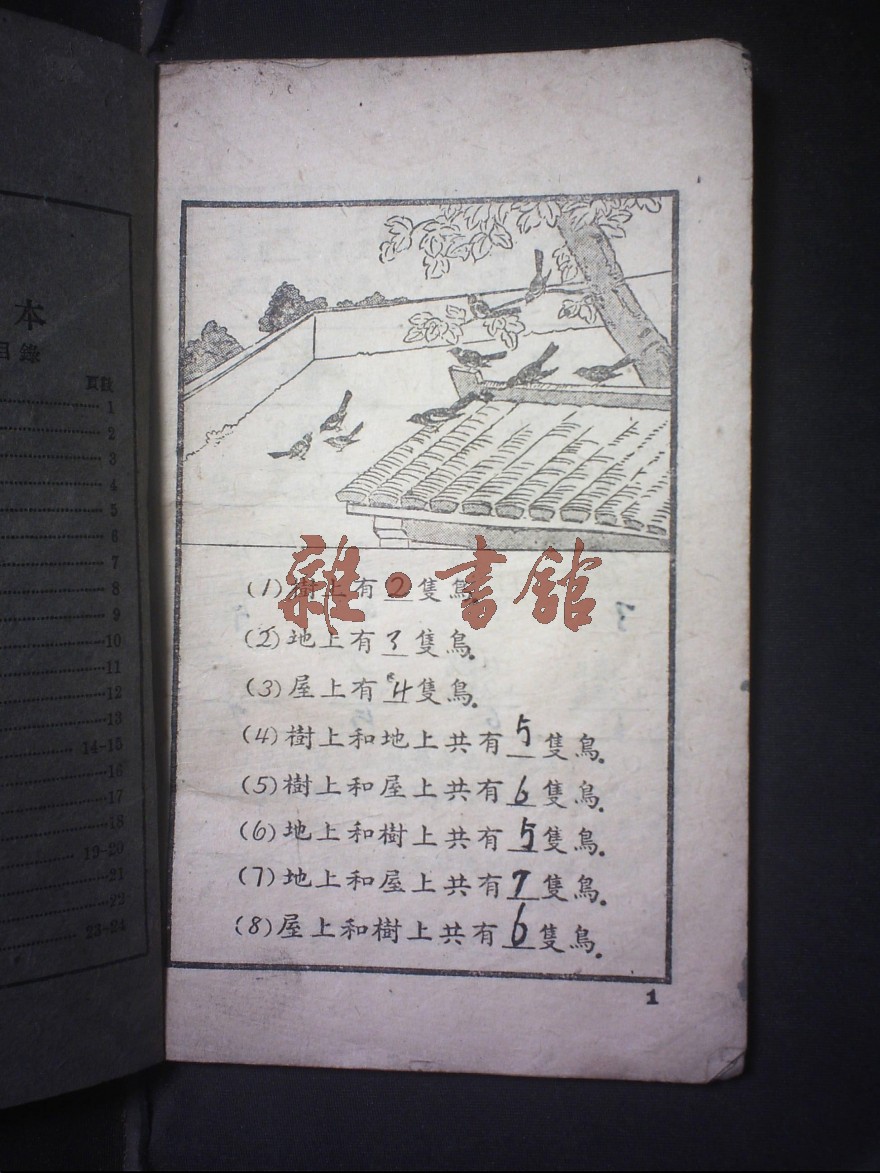 本
目錄
頁數
1
2
3
4
5
6
7
8
9
10
11
12
13
14-15
16
17
18
19-20
21
22
23-24
(1)樹上有2隻鳥.
(2)地上有3隻鳥.
(3)屋上有4隻鳥.
(4)樹上和地上共有5隻鳥.
(5)樹上和屋上共有6隻鳥.
(6)地上和樹上共有5隻鳥.
(7)地上和屋上共有7隻鳥.
(8)屋上和樹上共有6隻鳥.
1
雜·書館